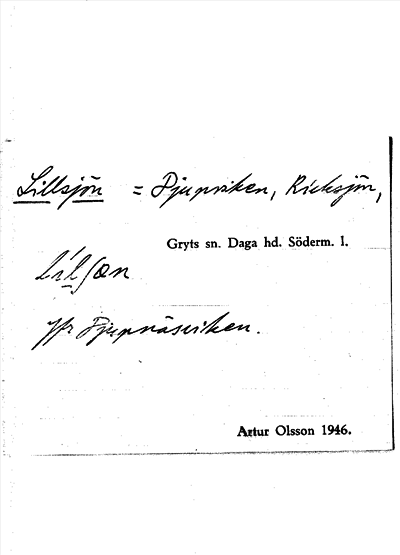 Lillsjön = Djupviken, Ricksjön,
Gryts sn. Daga hd. Söderm. l.
jfr Djupnäsviken.
Artur Olsson 1946.